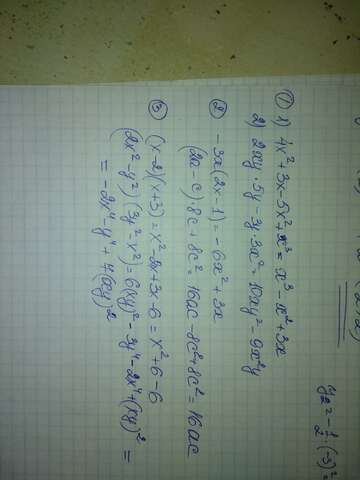 y₂ = -1/2 · (-3)²
① 1) 4x² + 3x - 5x² + x³ = x³ - x² + 3x
2) 2xy · 5y - 3y · 3x² = 10xy² - 9x²y
② -3x(2x - 1) = -6x² + 3x
(2a - c) · 8c + 8c² = 16ac - 8c² + 8c² = 16ac
③ (x - 2)(x + 3) = x² - 2x + 3x - 6 = x² + 6 - 6
(2x² - y²)(3y² - x²) = 6(xy)² - 3y⁴ - 2x⁴ + (xy)² =
= -2x⁴ - y⁴ + 7(xy)²